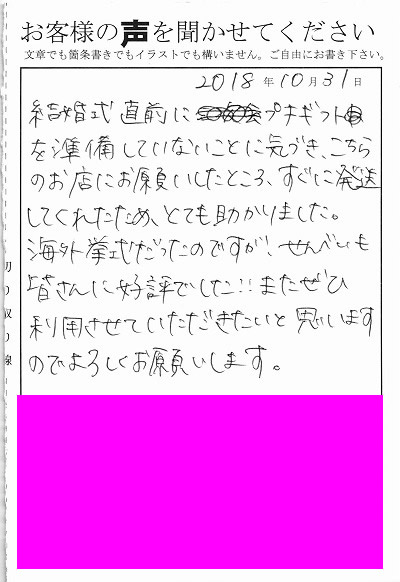 お客様の声を聞かせてください
文章でも箇条書きでもイラストでも構いません。ご自由にお書き下さい。
2018年10月31日
結婚式直前にプチギフト
を準備していないことに気づき、こちら
のお店にお願いしたところ、すぐに発送
してくれたため、とても助かりました。
海外挙式だったのですが、せんべいも
皆さんに好評でした!!またぜひ
利用させていただきたいと思います
のでよろしくお願いします。
切り取り線